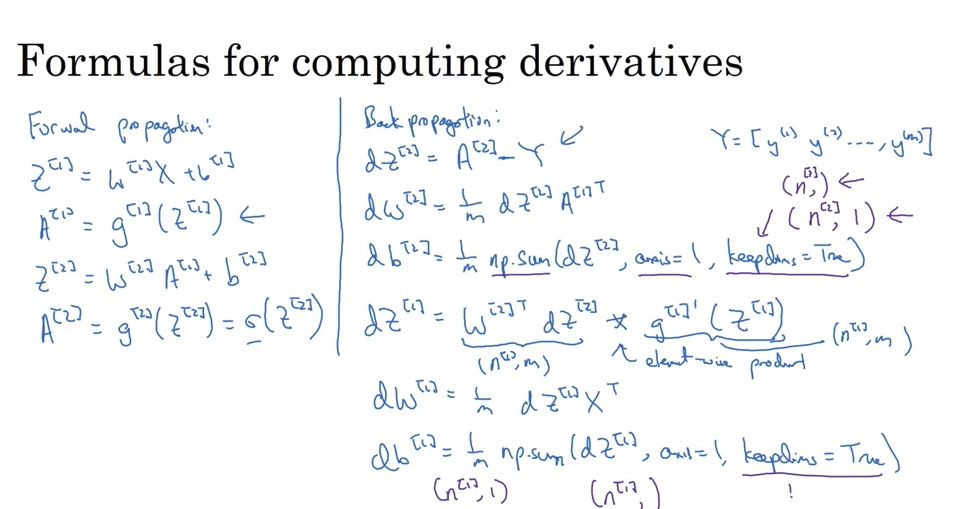 Formulas for computing derivatives
Forwal propagation:
Z^[1] = W^[1]X + b^[1]
A^[1] = g^[1](Z^[1]) ←
Z^[2] = W^[2] A^[1] + b^[2]
A^[2] = g^[2](Z^[2]) = σ(Z^[2])
Back propagation:
dZ^[2] = A^[2] - Y ↙
dW^[2] = 1/m dZ^[2] A^[1]T
db^[2] = 1/m np.sum(dZ^[2], axis=1, keepdims=True)
dZ^[1] = W^[2]T dZ^[2] * g^[1]'(Z^[1])
(n^[1], m) ↖ element-wise product (n^[1], m)
dW^[1] = 1/m dZ^[1] X^T
db^[1] = 1/m np.sum(dZ^[1], axis=1, keepdims=True)
(n^[1], 1) (n^[1],) !
Y = [y^(1) y^(2) ..., y^(m)]
(n^[2],) ←
↙ (n^[2], 1) ←